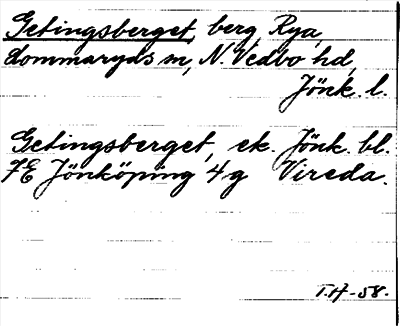 Getingsberget, berg, Rya,
Lommaryds sn, N. Vedbo hd,
Jönk. l.
Getingsberget, ek. Jönk. bl.
7E Jönköping 4g Vireda.
T.H-58.